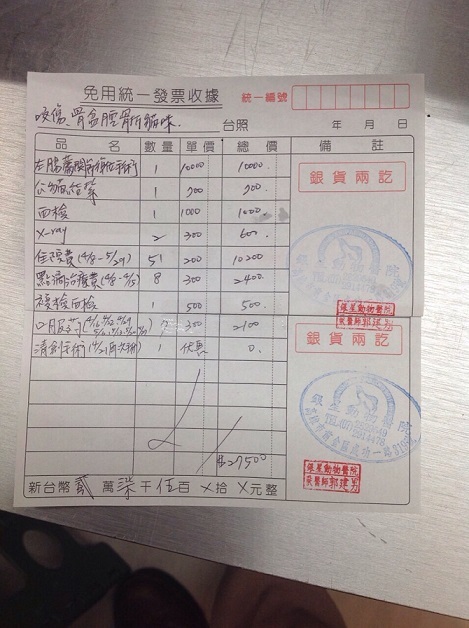 免用統一發票收據 統一編號
咬傷.骨盆脛骨折貓咪. 台照 年 月 日
品名 數量 單價 總價 備註
左腸薦關節復位手術 1 10000 10000.
公貓結紮 1 700 700.
血檢 1 1000 1000.
X-ray 2 300 600.
住院費(4/8-5/29) 51 200 10200
點滴治療費(4/8-4/15) 8 300 2400
複檢血檢 1 500 500.
口服藥 7 300 2100
清創手術(4/21再次手術) 1 优惠 0.
$27500
新台幣貳萬柒千伍百X拾X元整
銀貨兩訖
動物醫院
銀貨兩訖
動物醫院